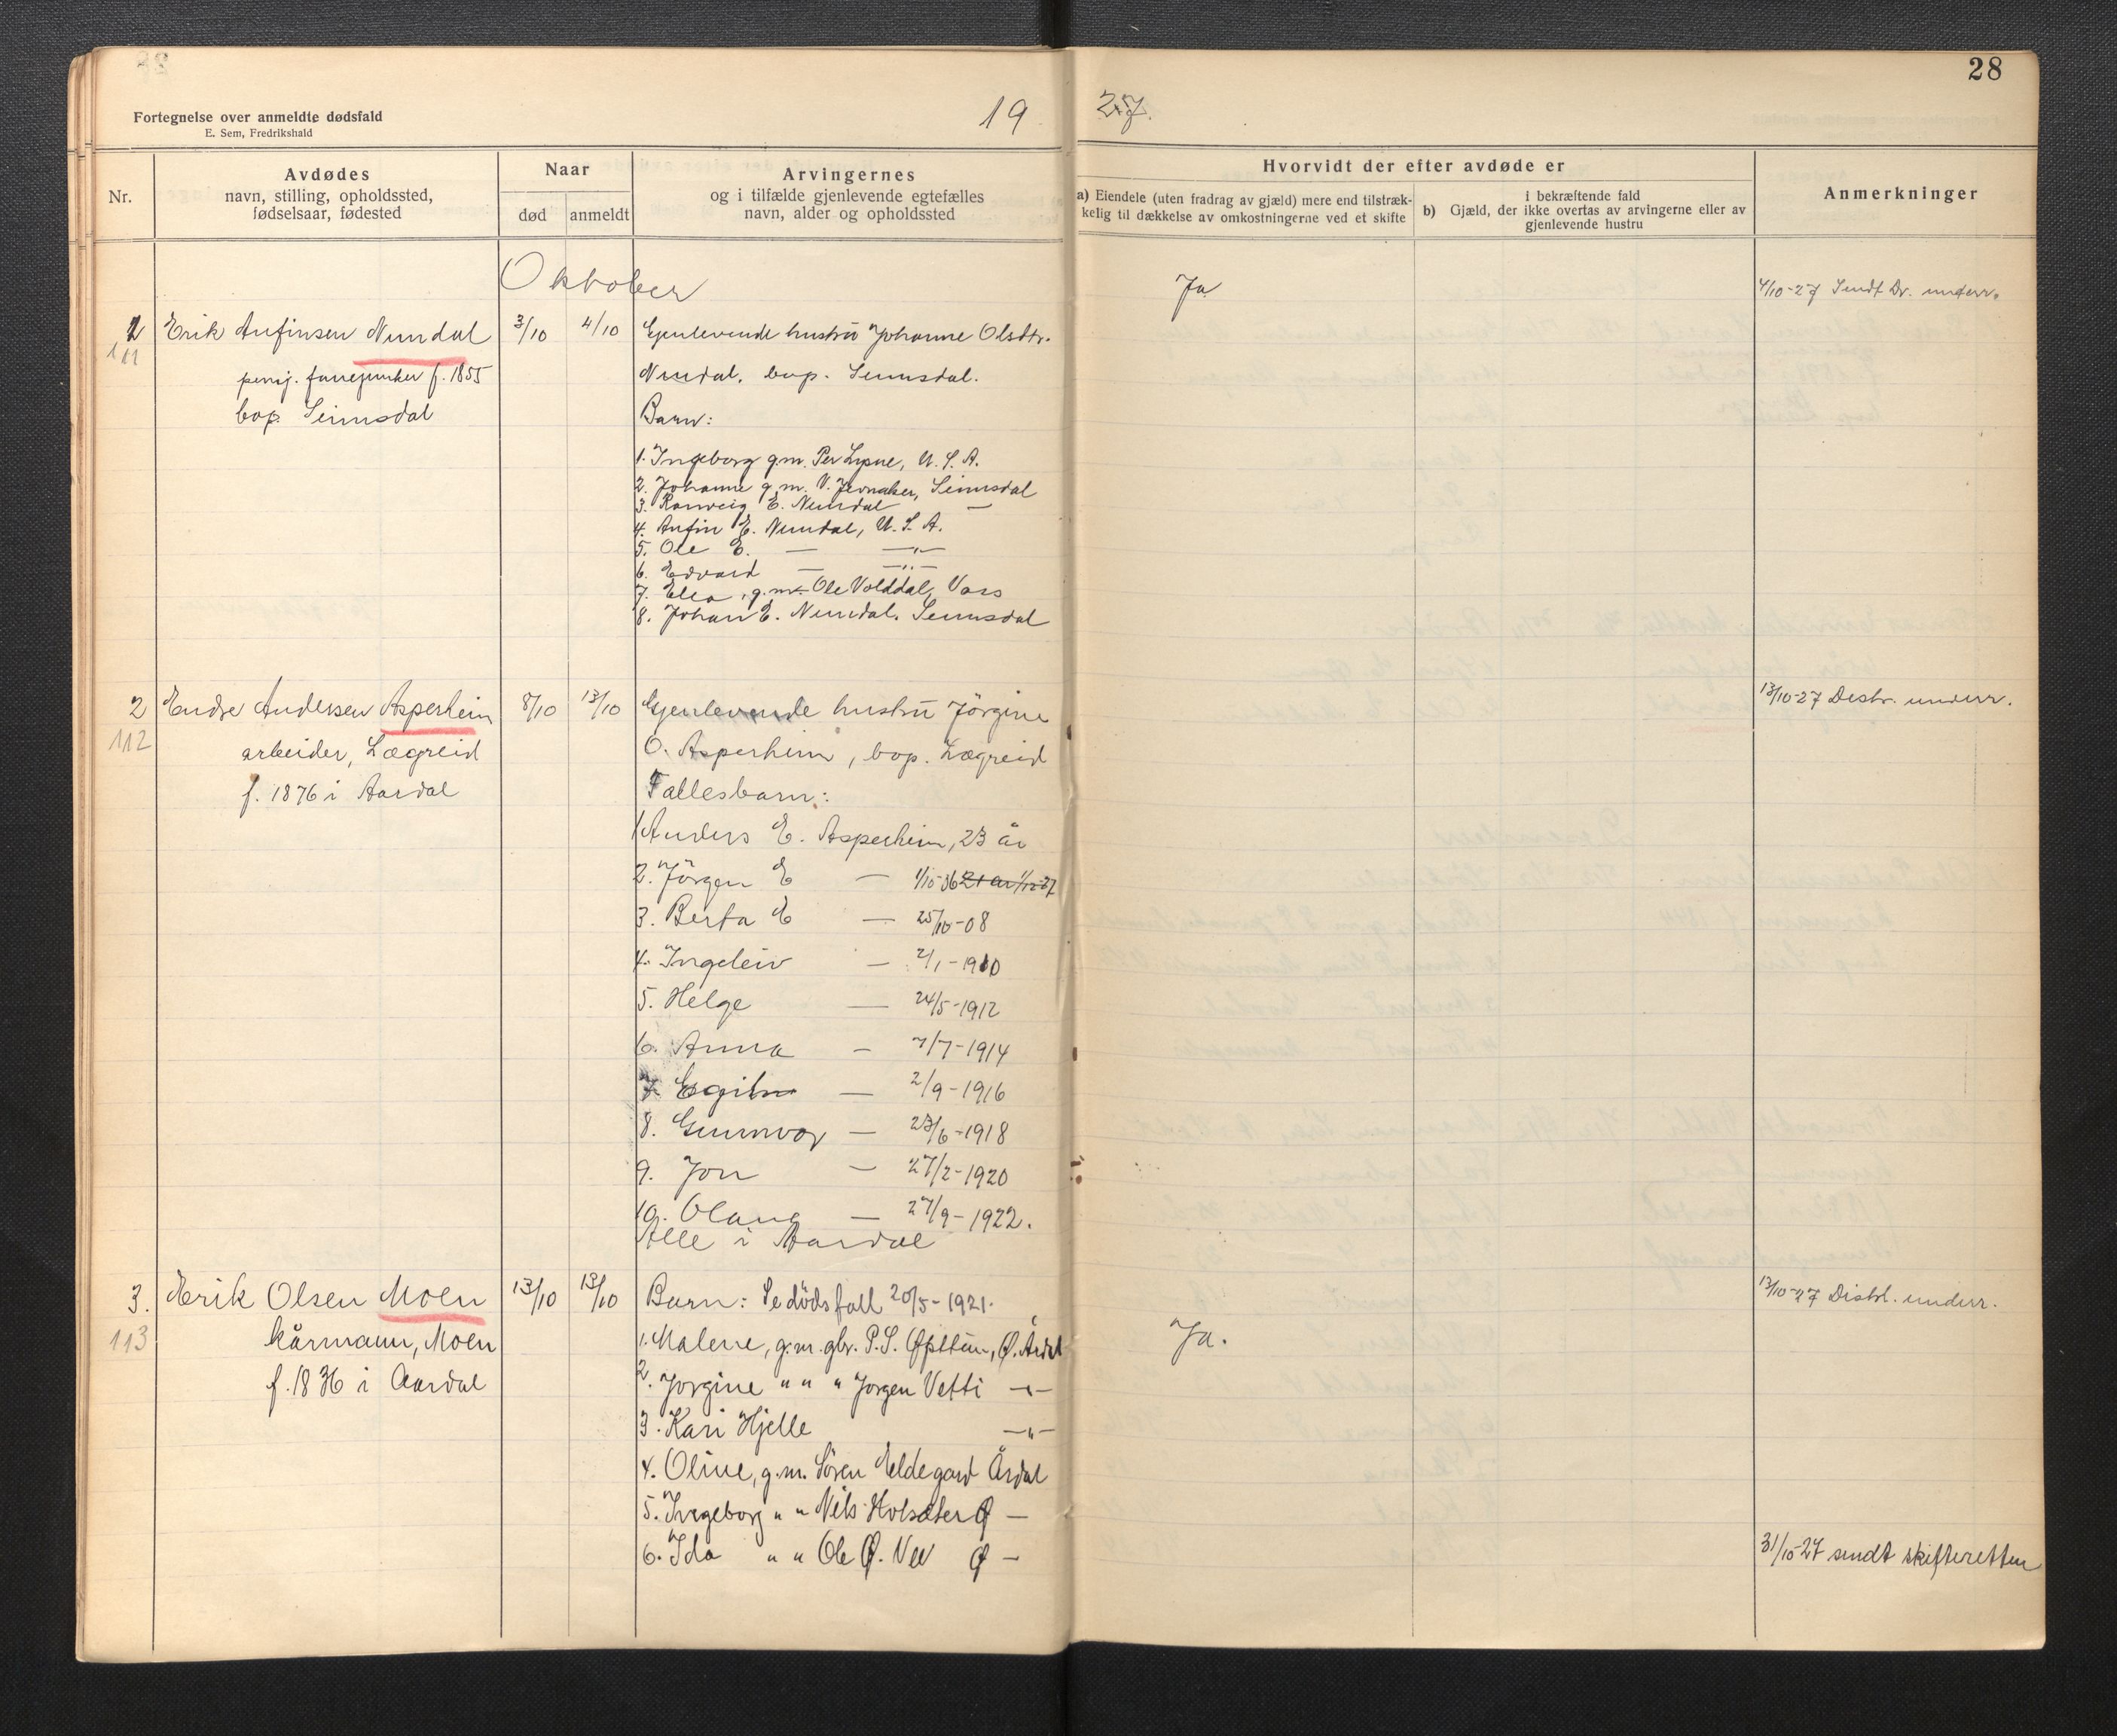 28
Fortegnelse over anmeldte dødsfald
E. Sem, Fredrikshald
19 27.
Nr.
Avdødes
navn, stilling, opholdssted,
fødselsaar, fødested
Naar
død
anmeldt
Arvingernes
og i tilfælde gjenlevende egtefælles
navn, alder og opholdssted
Hvorvidt der efter avdøde er
a) Eiendele (uten fradrag av gjæld) mere end tilstræk-
kelig til dækkelse av omkostningerne ved et skifte
i bekræftende fald
b) Gjæld, der ikke overtas av arvingerne eller av
gjenlevende hustru
Anmerkninger
Oktober
Ja
4/10-27 Sendt Dr. underr.
1 Erik Anfinsen Nundal 3/10 4/10 Gjenlevende hustru Johanne Olsdtr.
111
pensj. fanejunker f. 1855 Nundal, bop. Seimsdal.
bop. Seimsdal Barn:
1. Ingeborg g.m. Per Lysne, U.S.A.
2. Johanne g.m. V. Jevnaker, Seimsdal
3. Ranveig E. Nundal —
4. Anfin E. Nundal, U.S.A.
5. Ole E. — —"—
6. Edvard — —"—
7. Ella, g.m. Ole Volddal, Vors
8. Johan E. Nundal, Seimsdal
2 Endre Andersen Asperheim 8/10 13/10 Gjenlevende hustru Jörgine 13/10-27 Distr. underr.
112 arbeider, Lægreid O. Asperheim, bop. Lægreid
f. 1876 i Aardal Fallesbarn:
1 Anders E. Asperheim, 23 år
2. Jörgen E — 1/10-06 21 år 1/10-27
3. Berta E — 25/10-08
4. Ingeleiv — 2/1-1910
5. Helge — 24/5-1912
6. Anna — 7/7-1914
7. Egil — 2/9-1916
8. Gunnvor — 23/6-1918
9. Jon — 27/2-1920
10. Olaug — 27/9-1922.
Alle i Aardal
3. Erik Olsen Moen 13/10 13/10 Barn: Se dödsfall 20/5-1921. 13/10-27 Distr. underr.
113 kårmann, Moen 1. Malene, g.m. gbr. P.S. Øpttun, Ø. Årdal Ja.
f. 1836 i Aardal 2. Jorgine " " " Jorgen Vetti —"—
3. Kari Hjelle —"—
4. Oline, g.m. Sören Eldegard Årdal
5. Ingeborg " " Nils Holsæter Ø —
6. Ida " " Ole Ø. Vee Ø —
31/10-27 sendt skifteretten